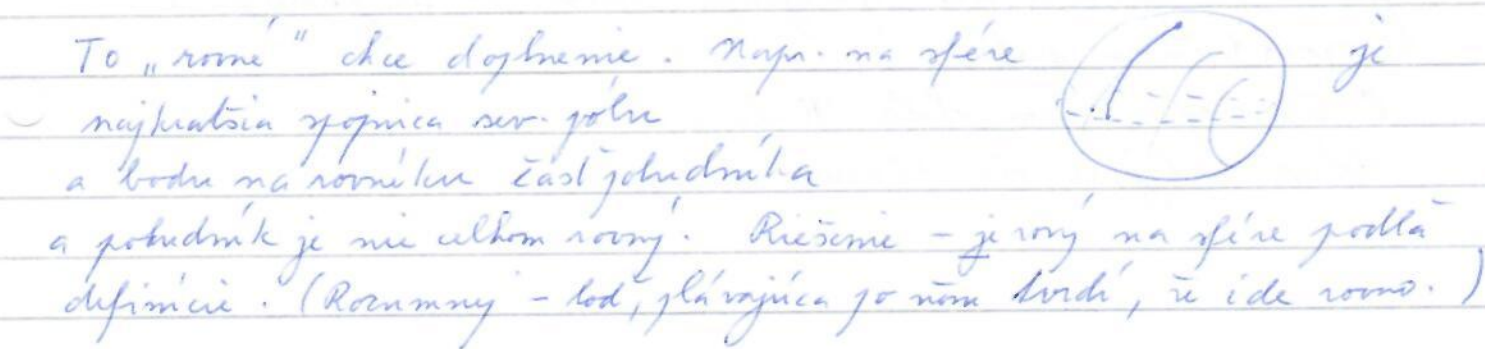 To „rovné“ chce doplnenie. Napr. na sfére je
najkratšia spojnica sev. pólu
a bodu na rovníku časť poludníka
a poludník je nie celkom rovný. Riešenie – je rovný na sfére podľa
definície. (Rozumný – loď, plávajúca po ňom tvrdí, že ide rovno.)